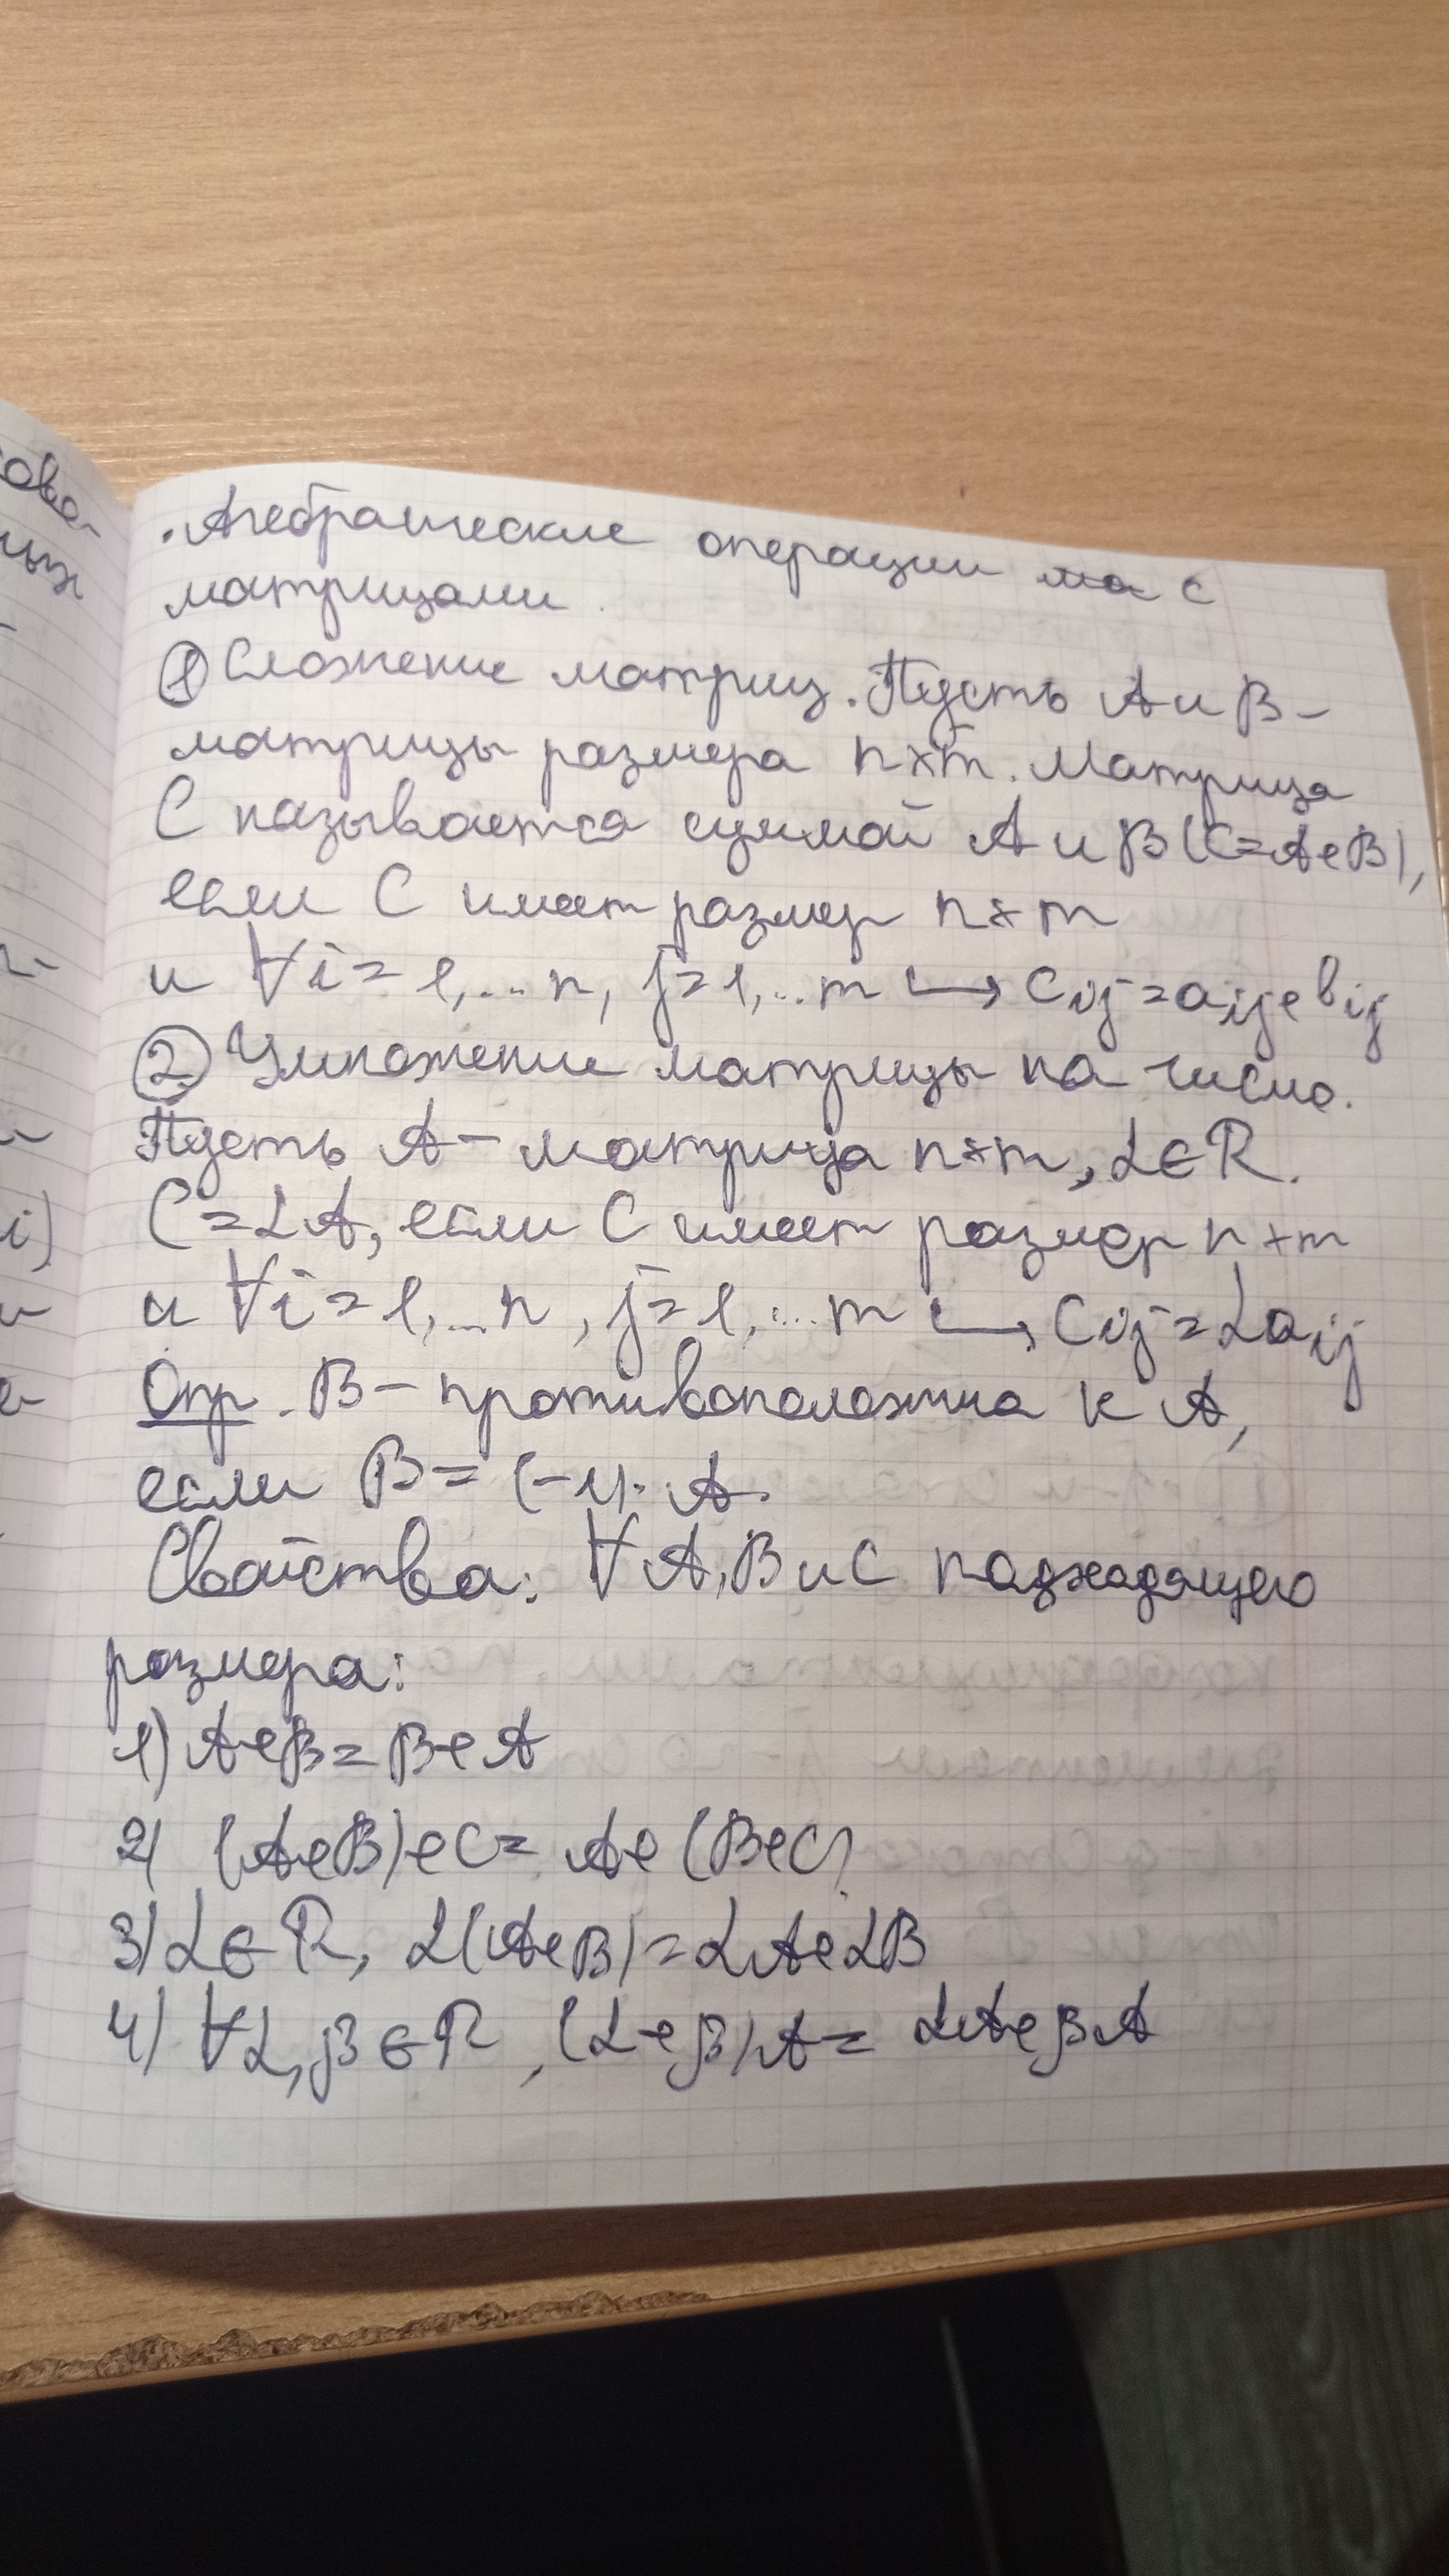 ова-
ных
· Алгебраические операции ма с
матрицами.
① Сложение матриц. Пусть A и B -
матрицы размера n×m. Матрица
C называется суммой A и B (C=A+B),
если C имеет размер n×m
и ∀i=1,...n, j=1,...m ↪ Cij=aij+bij
② Умножение матрицы на число.
Пусть A - матрица n×m, α∈R.
C=αA, если C имеет размер n×m
i)
и ∀i=1,...n, j=1,...m ↪ Cij=αaij
Опр. B - противоположна к A,
если B=(-1)·A.
Свойства: ∀A,B и C подходящего
размера:
1) A+B=B+A
2) (A+B)+C= A+(B+C)
3) α∈R, α(A+B)=αA+αB
4) ∀α,β∈R, (α+β)A= αA+βA